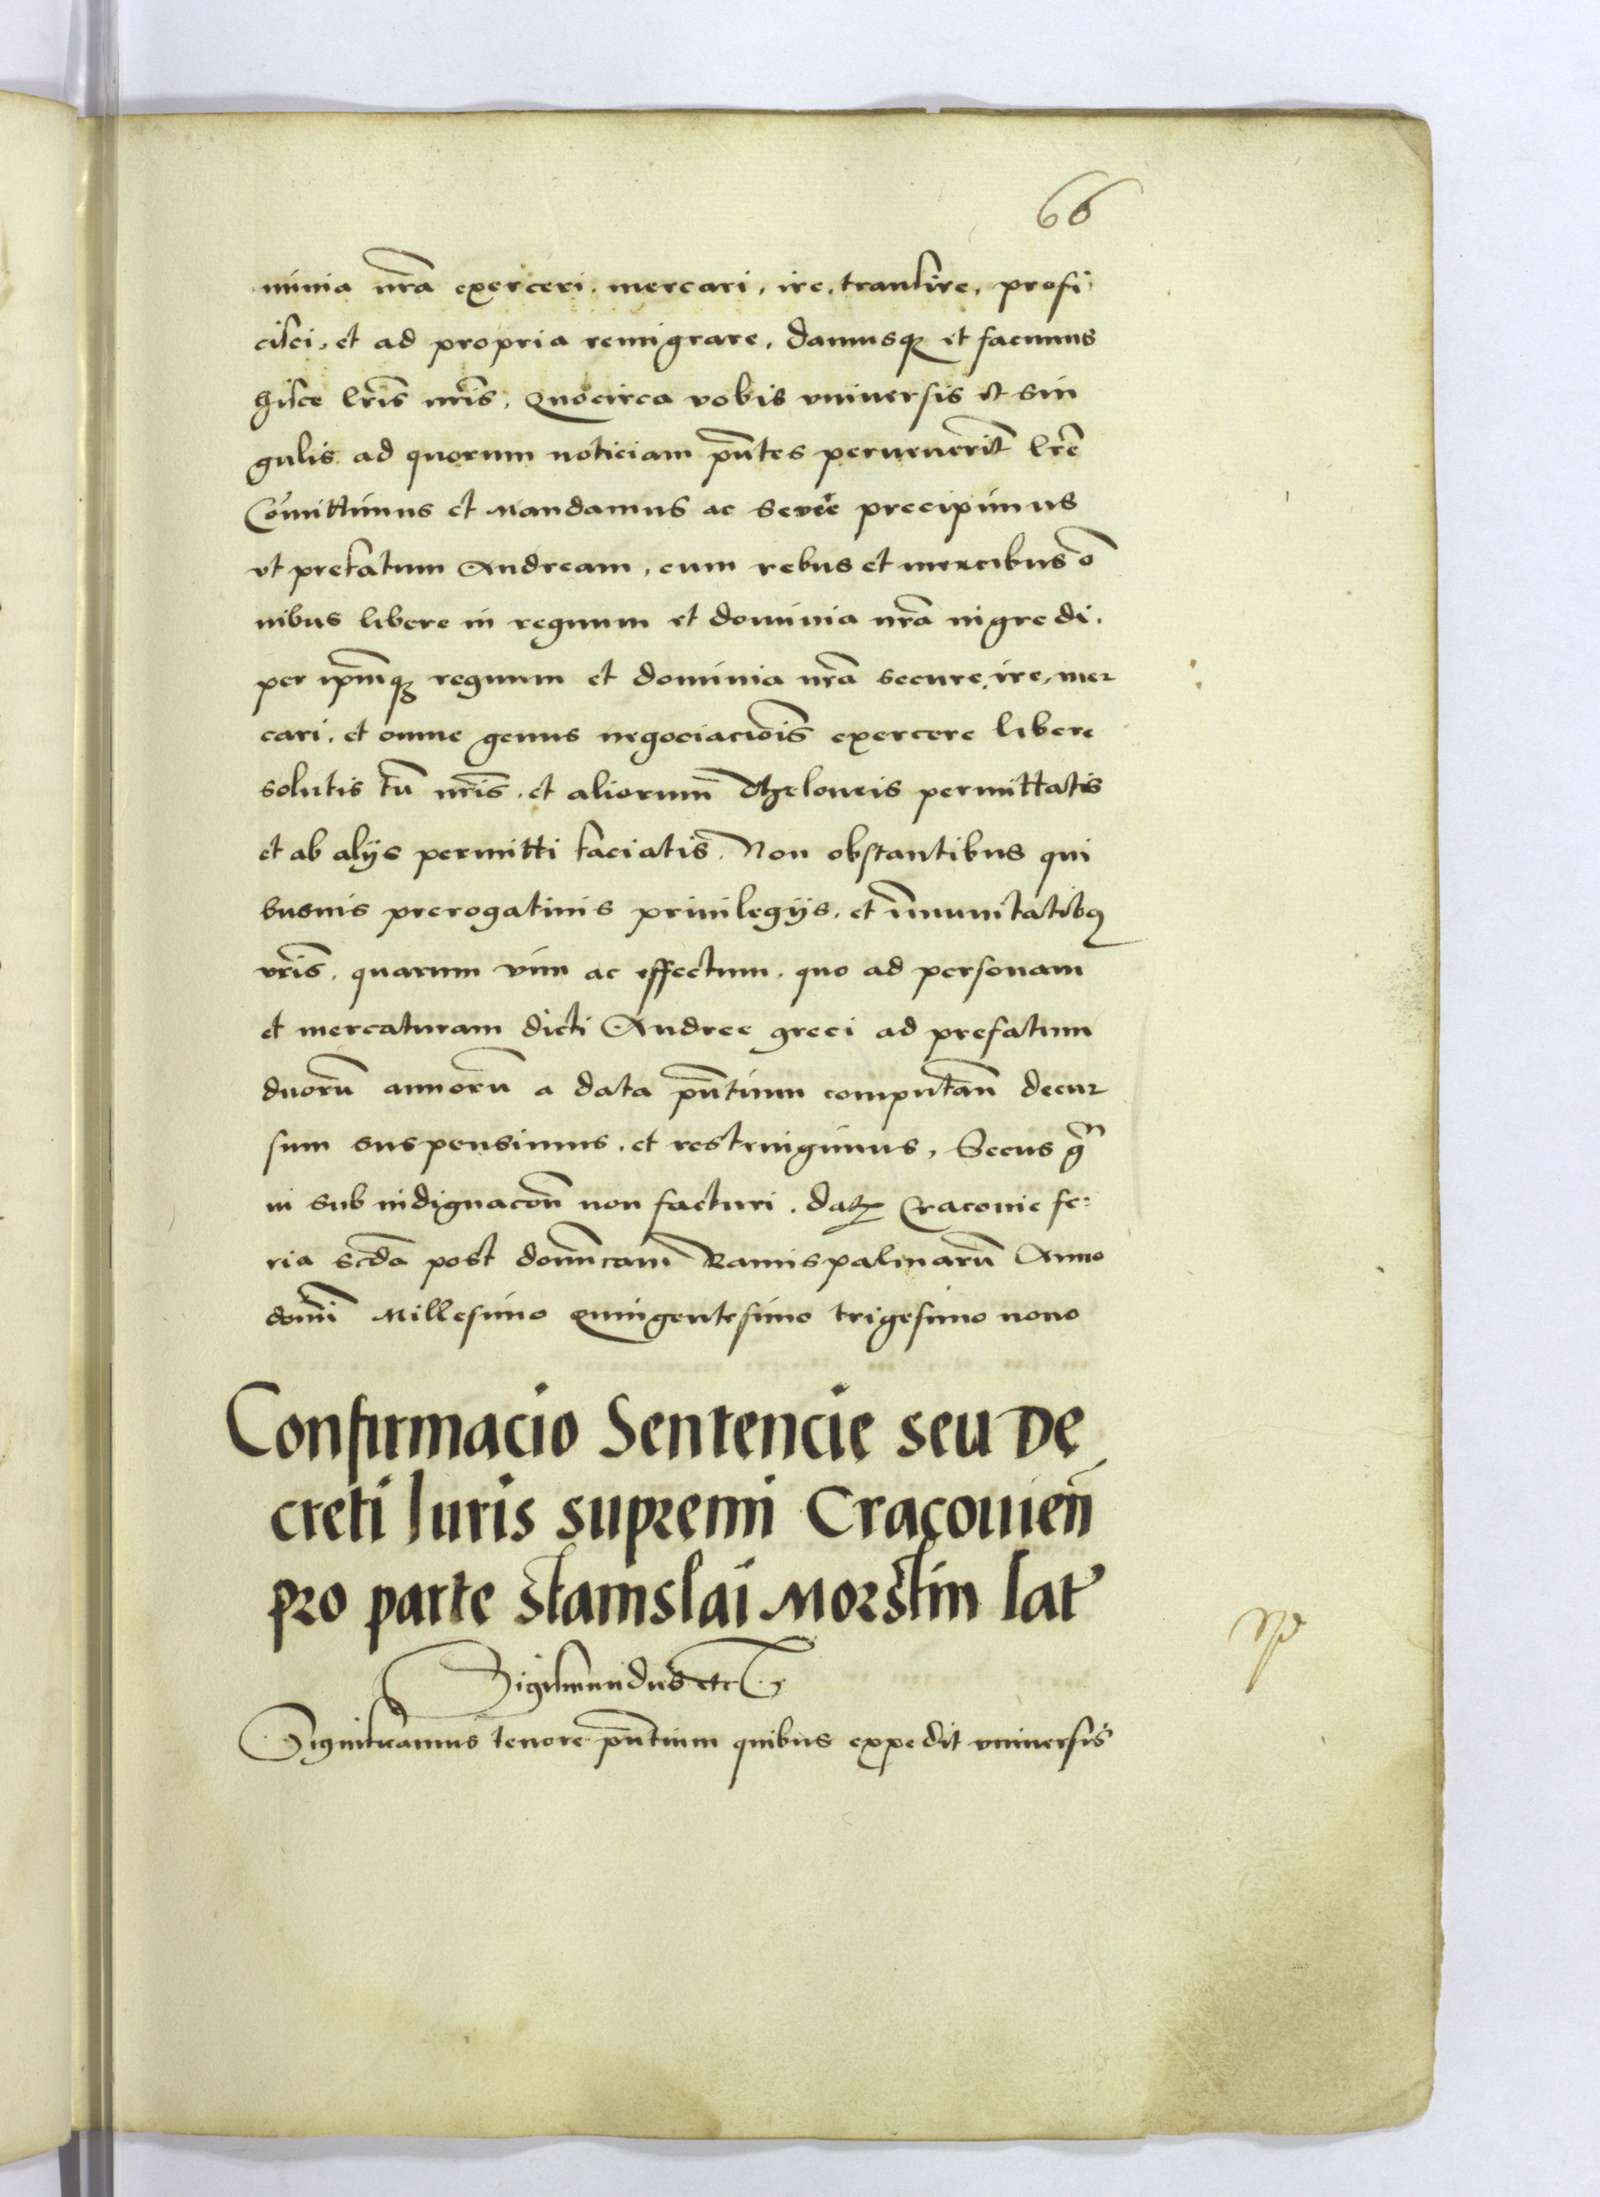 66
minia nr̄a exerceri. mercari, ire, transire, profi
cisci, et ad propria remigrare, damusqꝫ et facimus
hisce lr̄is nr̄is, Quocirca vobis vniuersis et sin
gulis ad quorum noticiam pn̄tes peruenerīt lr̄e
Cōmittimus et Mandamus ac seuēe precipimus
vt prefatum Andream, cum rebus et mercibus ō
nibus libere in regnum et dominia nr̄a ingredi.
per ipm̄qꝫ regnum et dominia nr̄a secure, ire, mer
cari, et omne genus negociacōis exercere libere
solutis tn̄ nr̄is, et aliorum theloneis permittatis
et ab alijs permitti faciatis. Non obstantibus qui
busuis prerogatiuis priuilegijs, et īmunitatibꝫ
vr̄is, quarum vim ac effectum, quo ad personam
et mercaturam dicti Andree greci ad prefatum
duorū annorū a data pn̄tium computan̄ decur
sum suspensimus, et restringimus, Secus
in sub indignacōn̄ non facturi. datꝫ Cracouie fe:
ria scd̄a post domīcam Ramispalmarū Anno
domī Millesimo Quingentesimo trigesimo nono
Confirmacio Sentencie seu De
creti Iuris supremi Cracouien̄
pro parte Stanislai Morstin lat
Sigismundus etc
Significamus tenore pn̄tium quibus expedit vniuersis